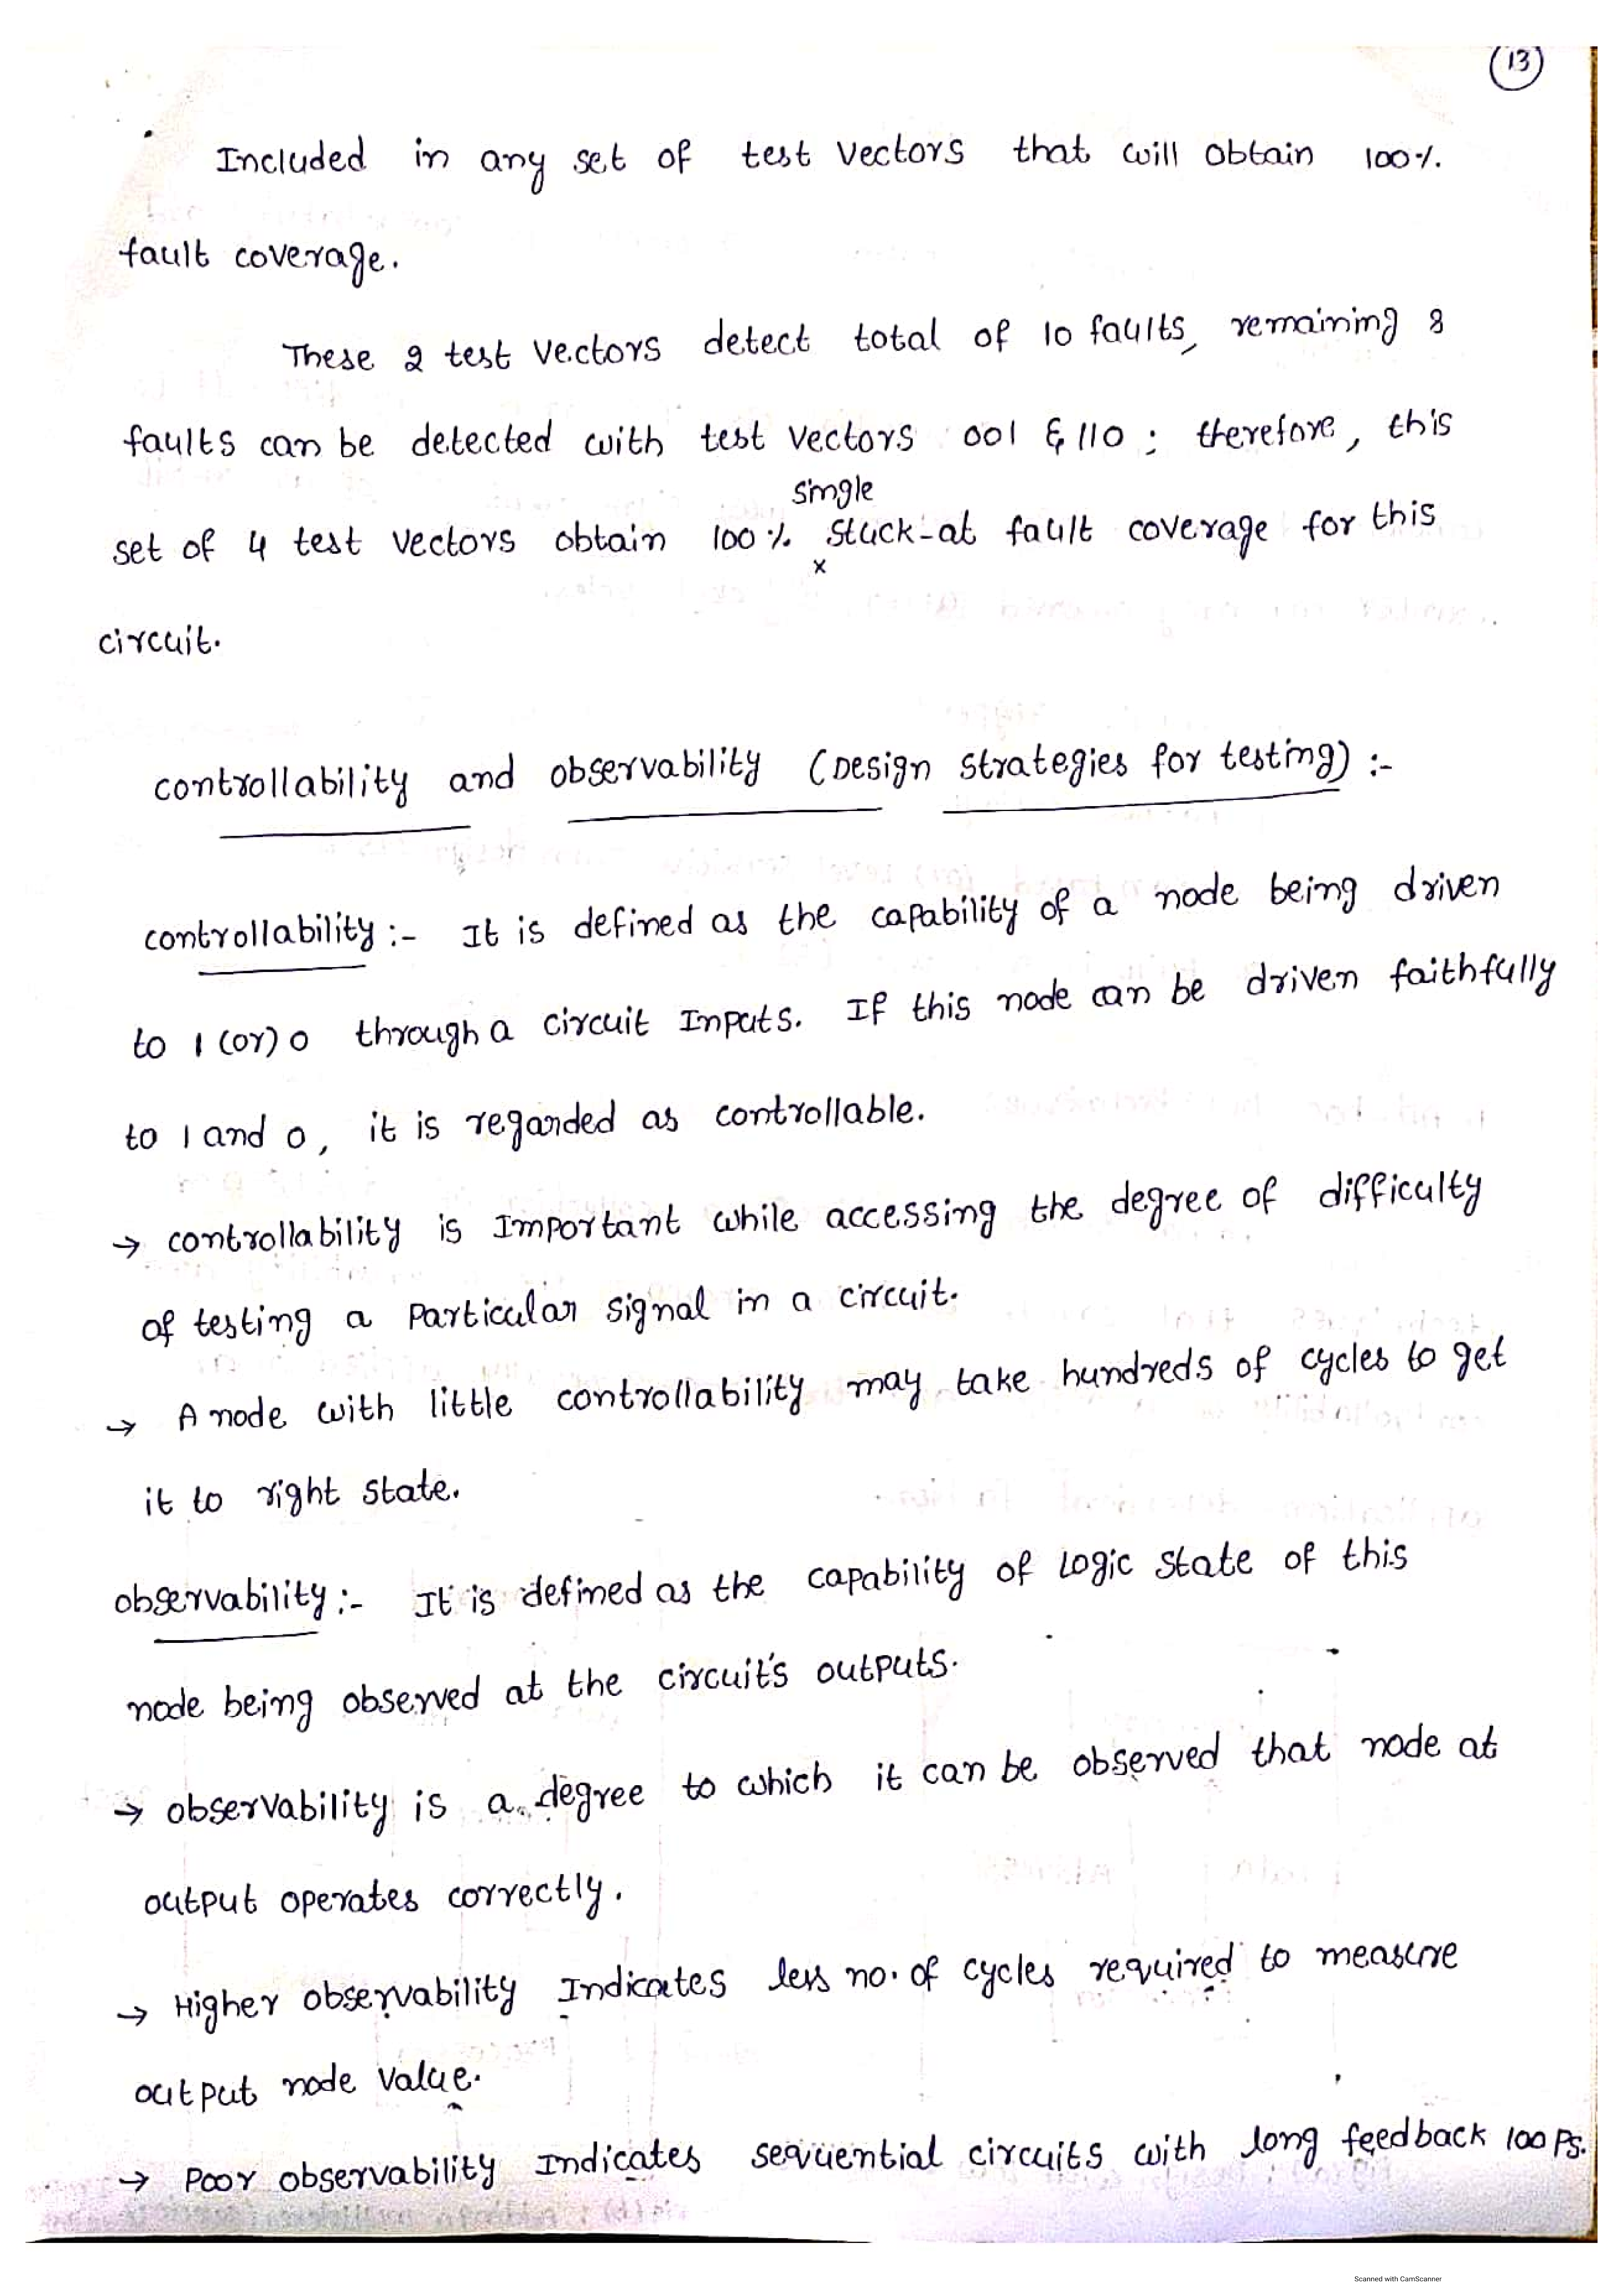 13
Included in any set of test vectors that will obtain 100%
fault coverage.
These 2 test vectors detect total of 10 faults, remaining 8
faults can be detected with test vectors 001 & 110 ; therefore, this
single
set of 4 test vectors obtain 100% stuck-at fault coverage for this
x
circuit.
controllability and observability (Design strategies for testing) :-
controllability :- It is defined as the capability of a node being driven
to 1 (or) 0 through a circuit Inputs. If this node can be driven faithfully
to 1 and 0, it is regarded as controllable.
→ controllability is Important while accessing the degree of difficulty
of testing a Particular signal in a circuit.
→ A node with little controllability may take hundreds of cycles to get
it to right state.
observability :- It is defined as the capability of Logic state of this
node being observed at the circuit's outputs.
→ observability is a degree to which it can be observed that node at
output operates correctly.
→ Higher observability Indicates less no. of cycles required to measure
output node value.
→ Poor observability Indicates sequential circuits with long feedback 100Ps.
Scanned with CamScanner